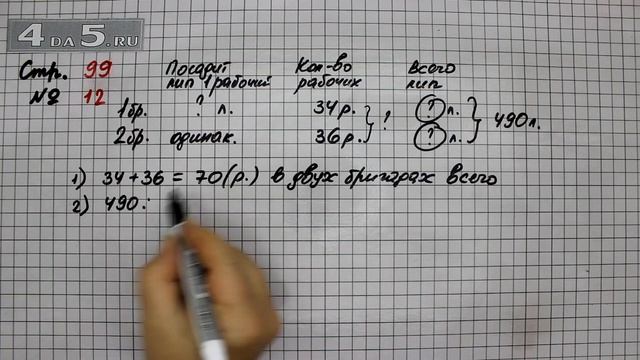 4DA5.RU
Стр. 99 Посадит Кол-во Всего
№ 12 лип 1 рабочий рабочих лип
1бр. ? л. 34р. } ? ? л. } 490л.
2бр. одинак. 36р. ? л.
1) 34+36 = 70(р.) в двух бригарах всего
2) 490: